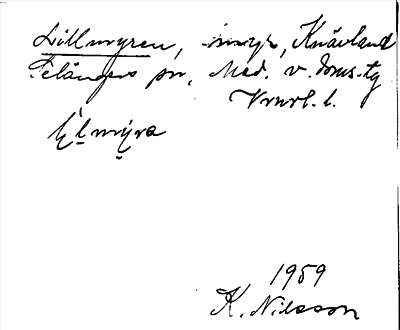 Lillmyren, myr, Knävland
Selångers sn, Med. v. doms.tg
Vrnrl. l.
Lįlmýra
1959
K. Nilsson